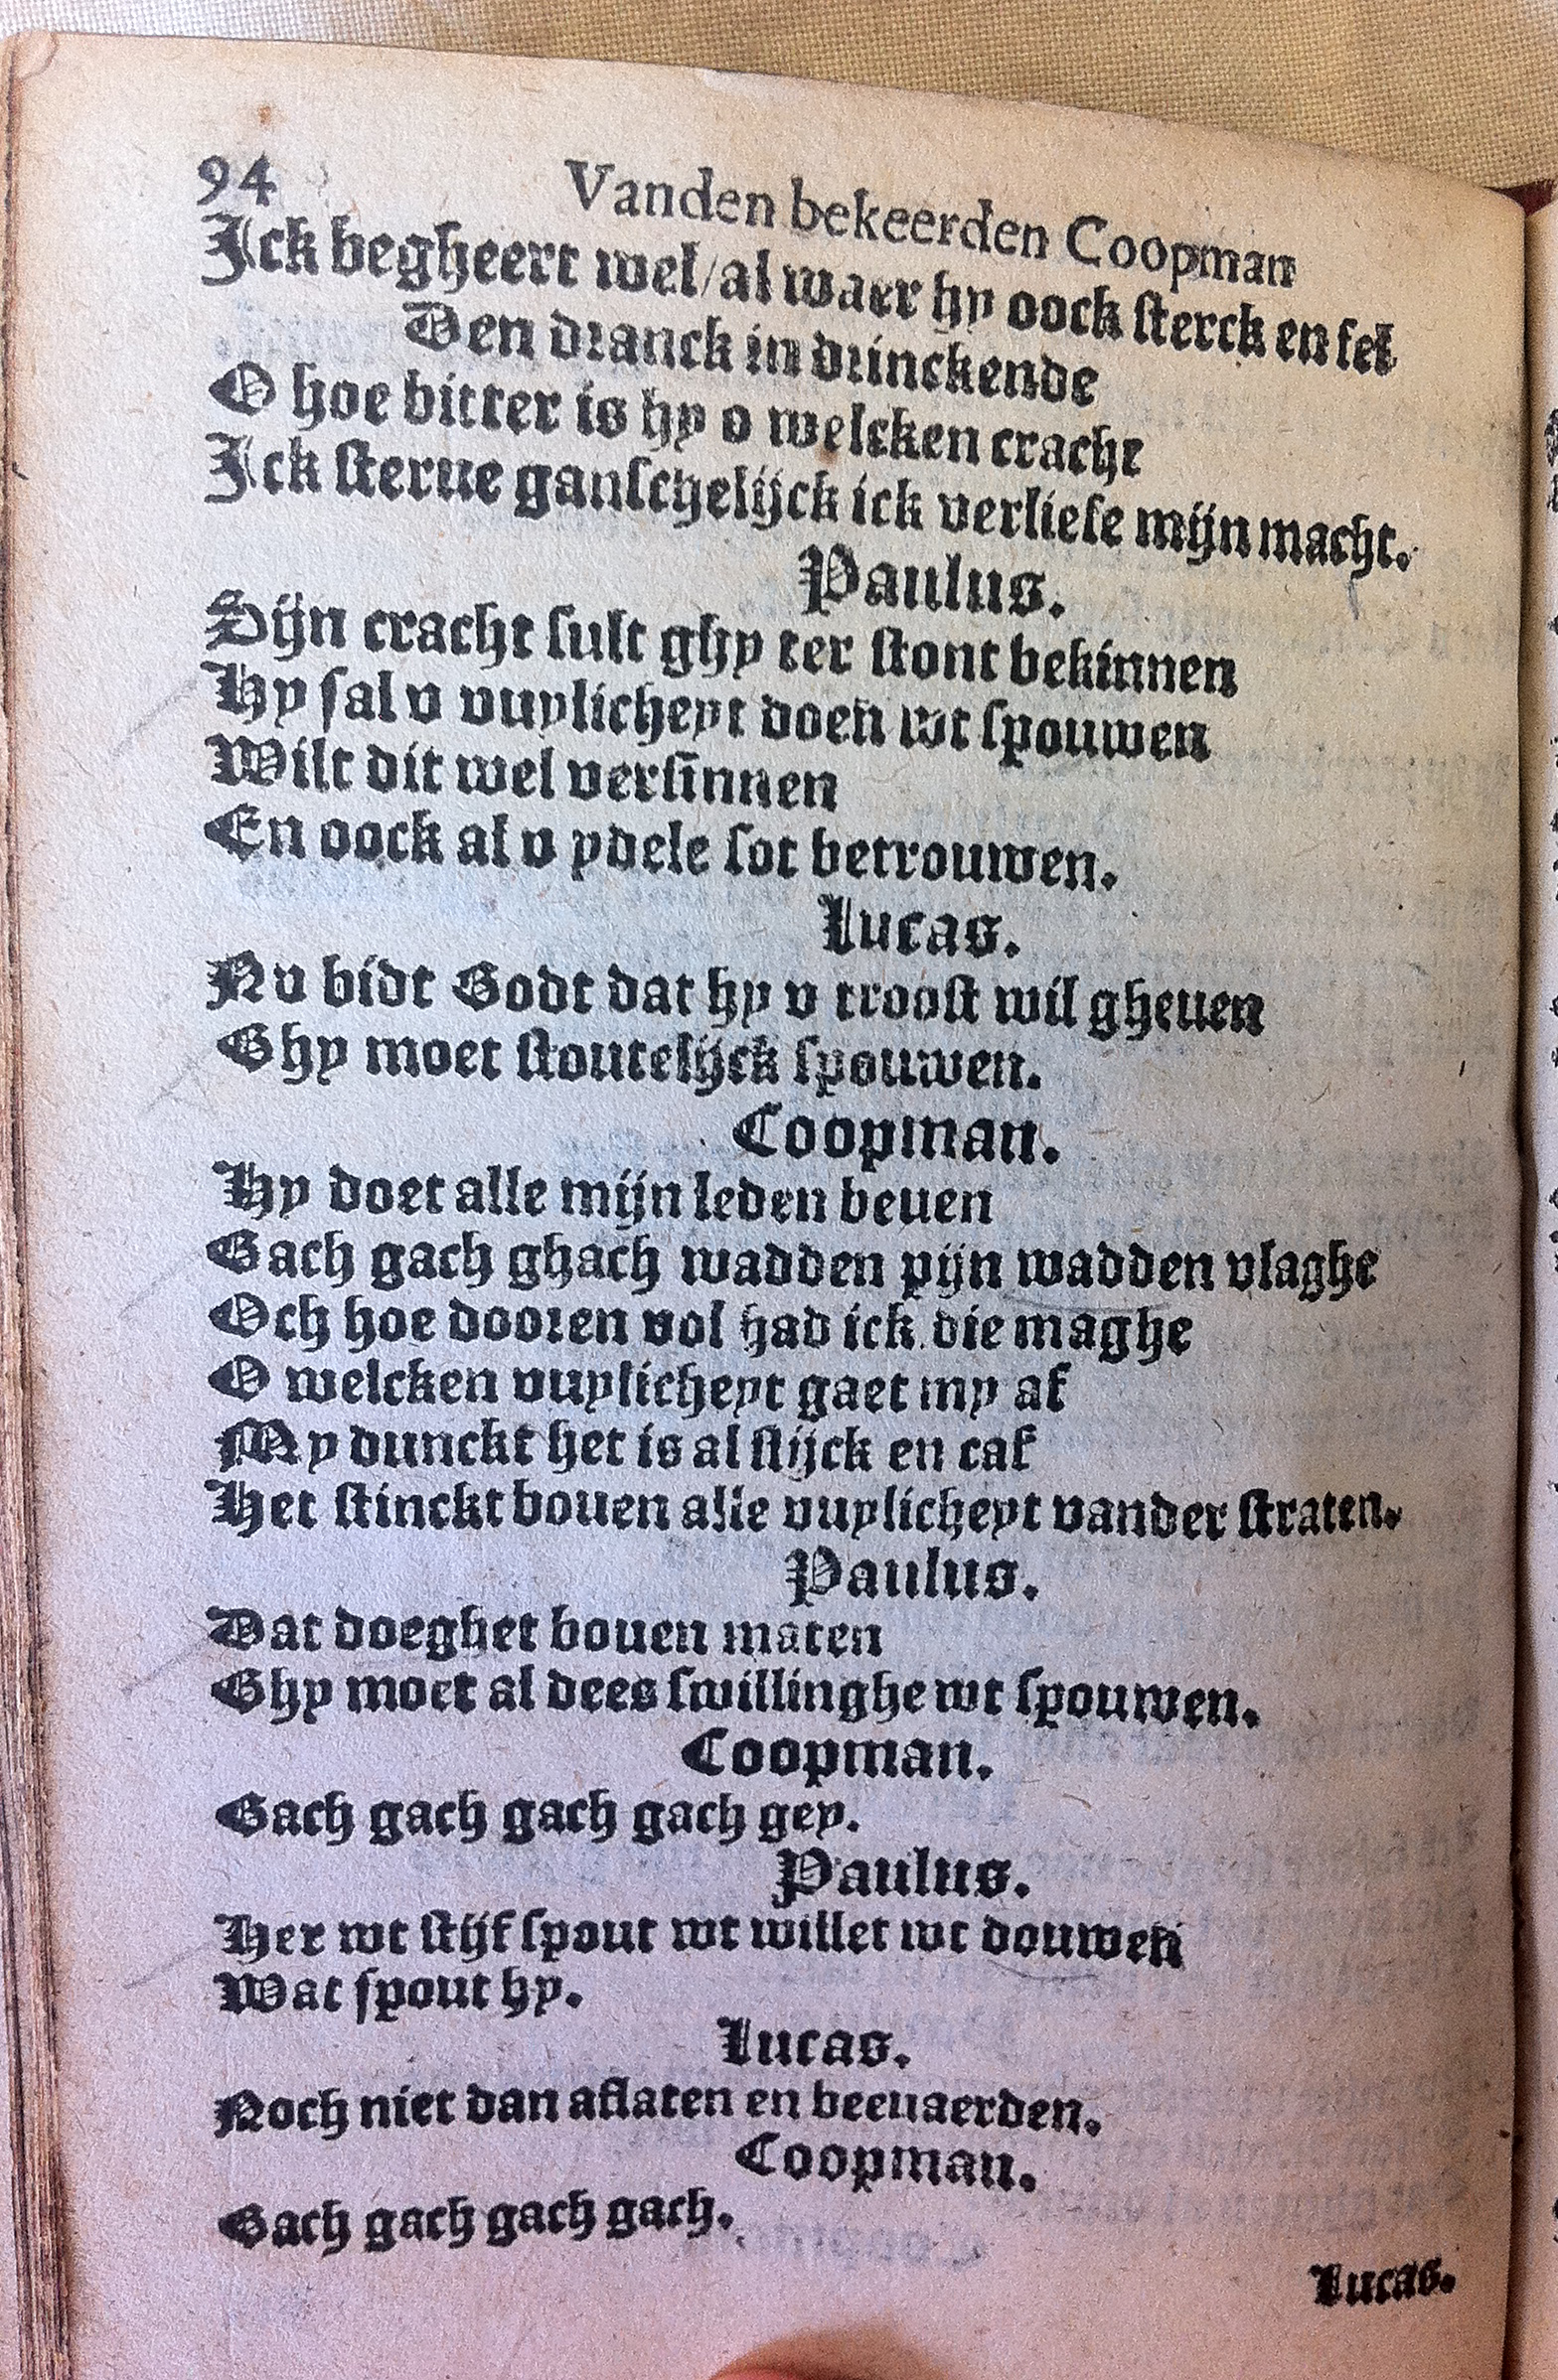 94 Vanden bekeerden Coopman
Ick begheert wel/al waer hy oock sterck en fel
Den dranck in drinckende
O hoe bitter is hy o welcken cracht
Ick sterue ganschelijck ick verliese mijn macht.
Paulus.
Sijn cracht sult ghy ter stont bekinnen
Hy sal v vuylicheyt doen wt spouwen
Wilt dit wel versinnen
En oock al v ydele sot betrouwen.
Lucas.
Nu bidt Godt dat hy v troost wil gheuen
Ghy moet stoutelijck spouwen.
Coopman.
Hy doet alle mijn leden beuen
Gach gach ghach wadden pijn wadden vlaghe
Och hoe dooren vol had ick die maghe
O welcken vuylicheyt gaet my af
My dunckt het is al slijck en caf
Het stinckt bouen alle vuylicheyt vander straten.
Paulus.
Dat doeghet bouen maten
Ghy moet al dees swillinghe wt spouwen.
Coopman.
Gach gach gach gach gey.
Paulus.
Her wt stijf spout wt willet wt douwen
Wat spout hy.
Lucas.
Noch niet dan aflaten en beeuaerden.
Coopman.
Gach gach gach gach.
Lucas.